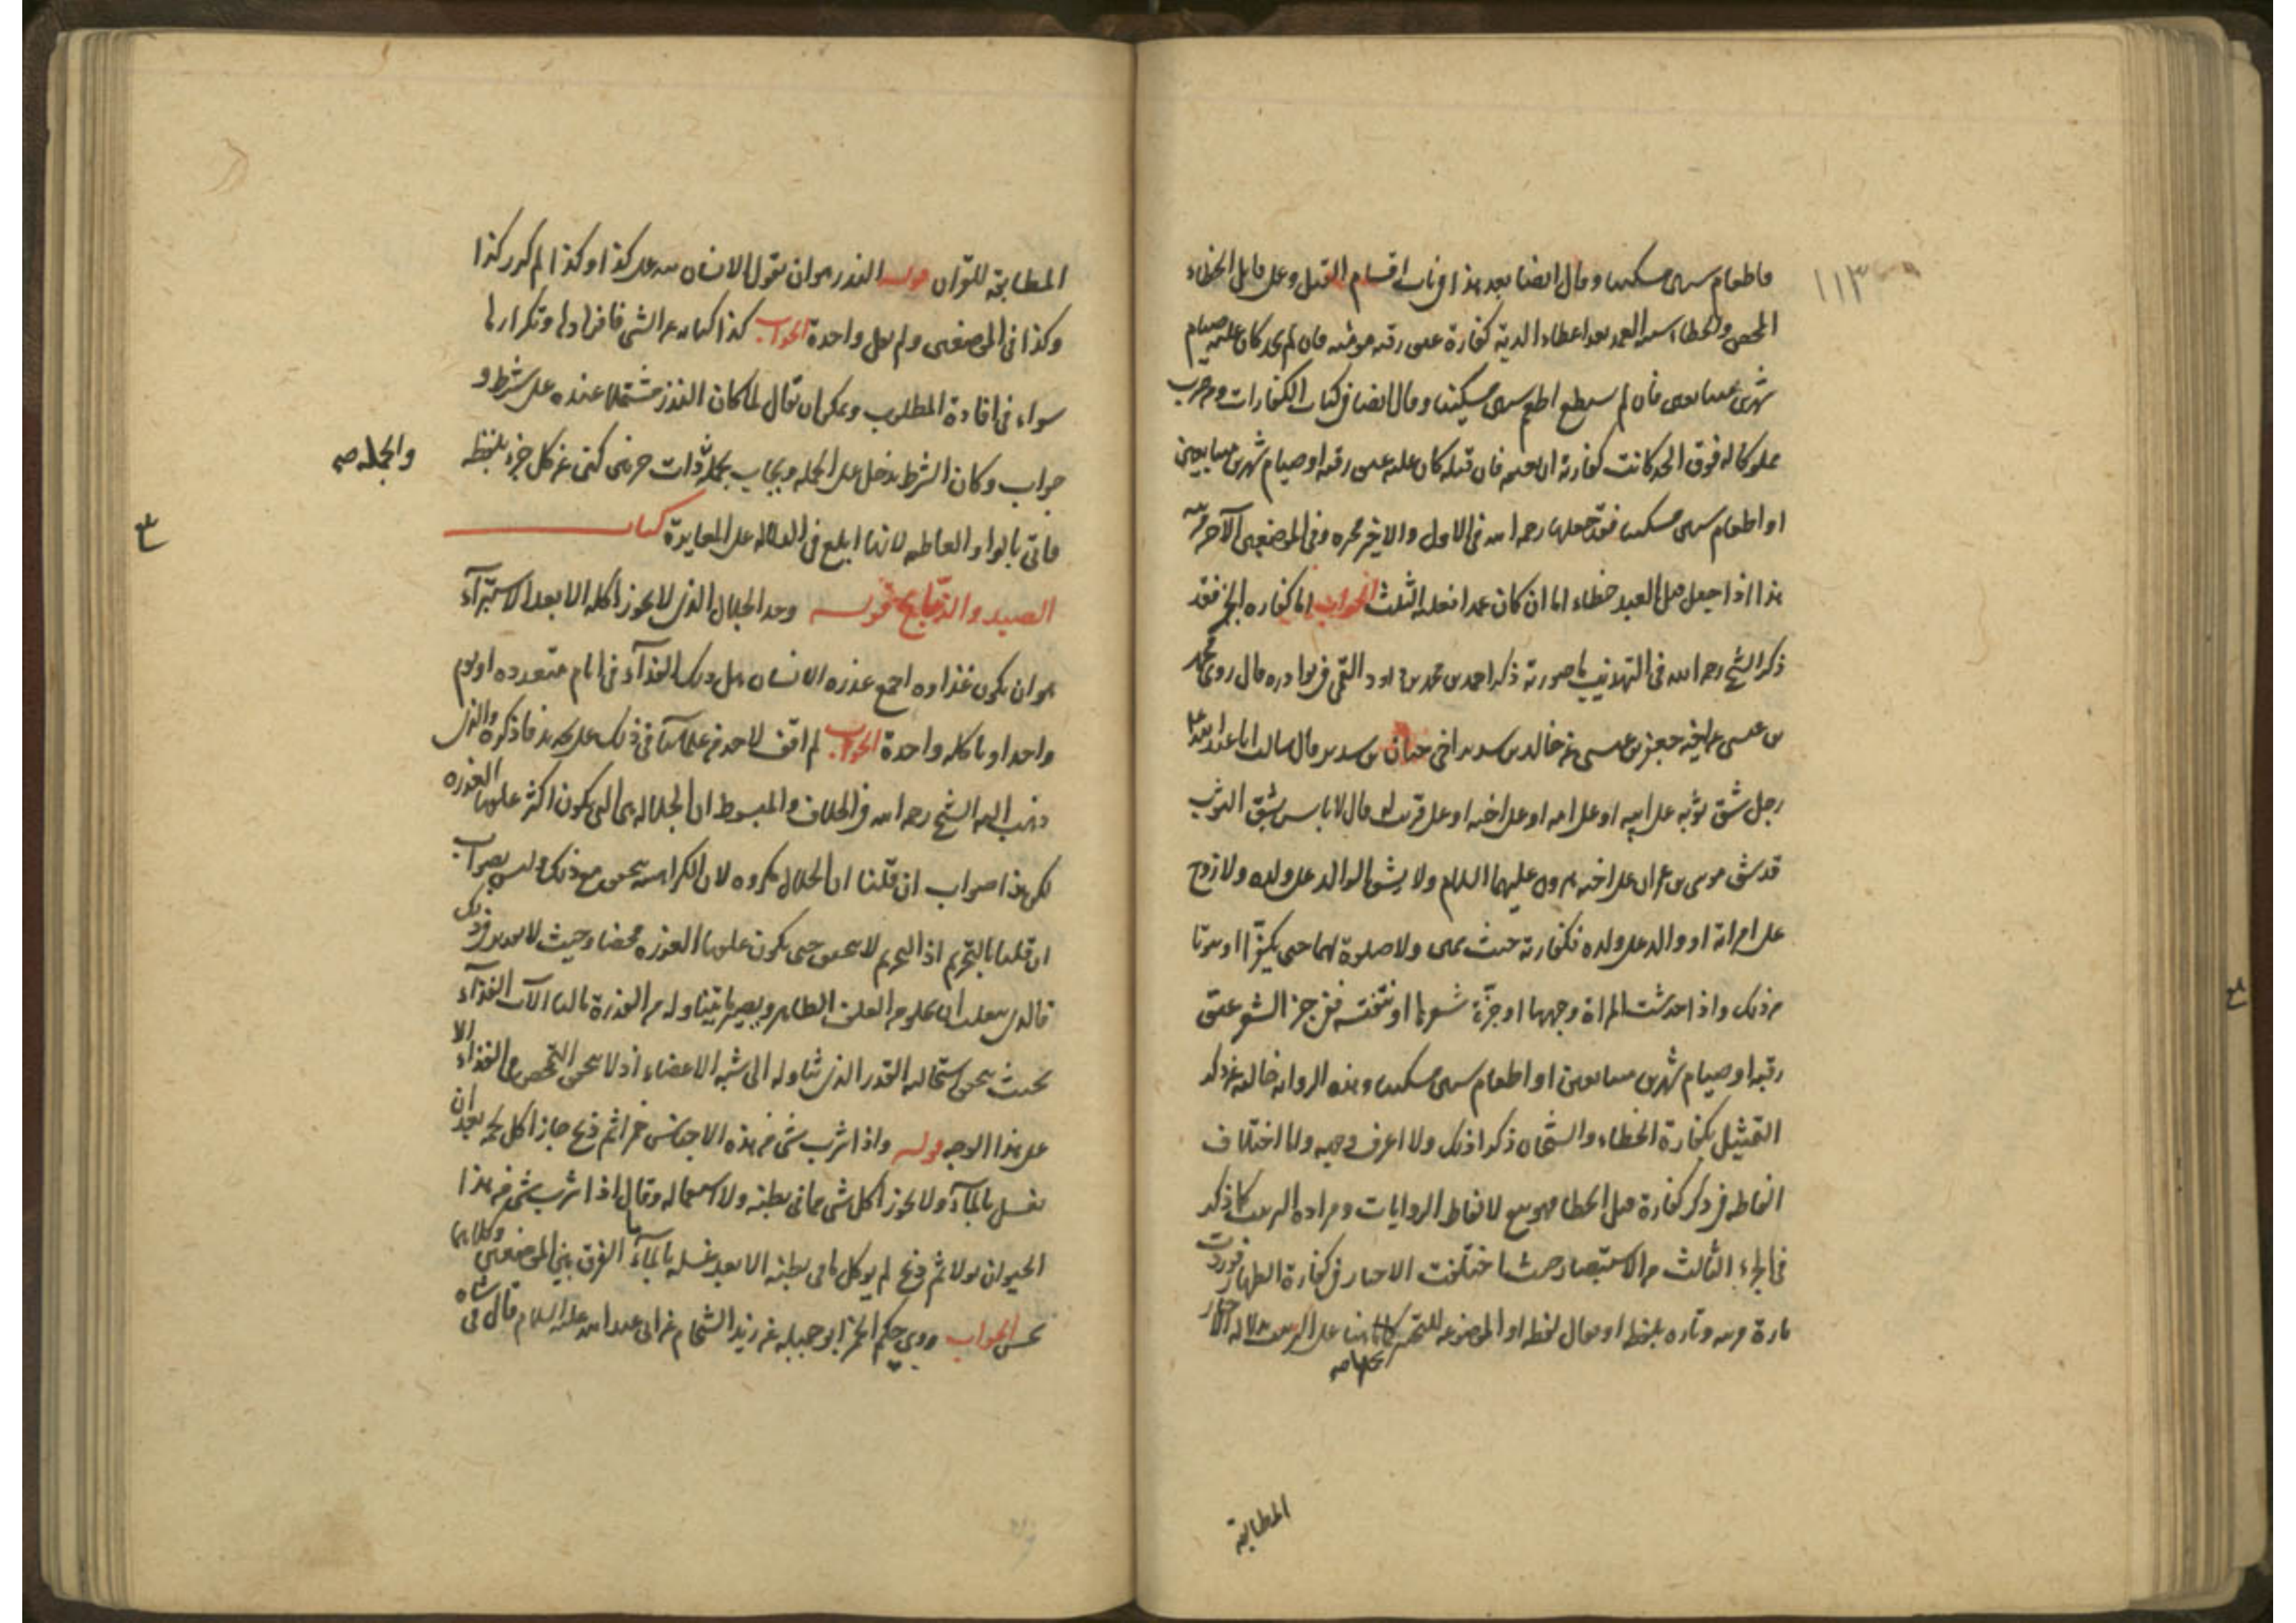 ١١٣
فاطعام ستين مسكينا وقال ايضا بعد هذا في باب اقسام القتل وعلى قاتل الخطاء
المحض والخطاء شبيه العمد بعد اعطاء الدية كفارة عتق رقبة مؤمنة فان لم يجد كان عليه صيام
شهرين متتابعين فان لم يستطع اطعم ستين مسكينا وقال ايضا في كتاب الكفارات ومن ضرب
مملوكا له فوق الحد كانت كفارته ان يعتقه فان قتله كان عليه عتق رقبة او صيام شهرين متتابعين
او اطعام ستين مسكينا فقد جعلها رحمه الله في الاول والاخير مخيرة وفي الموضعين الآخرين مرتبة
هذا اذا جعل قتل العبد خطاء اما ان كان عمدا فعليه الثلث الجواب اما كفاره الجز فقد
ذكر الشيخ رحمه الله في التهذيب ما صورته ذكر احمد بن محمد بن داود القمي في نوادره قال روى محمد
بن عيسى عن اخيه جعفر بن عيسى عن خالد بن سدير اخي حنان بن سدير قال سالت ابا عبد الله ع عن
رجل شق ثوبه على ابيه او على امه او على اخيه او على قريب له فقال لا باس بشق الثوب
قد شق موسى بن عمران على اخيه هرون عليهما السلام ولا يشق الوالد على ولده ولا زوج
على امراته او والد على ولده فكفارته حنث يمين ولا صلوة لهما حتى يكفرا او يتوبا
من ذلك واذا خدشت المراة وجهها او جزت شعرها او نتفته ففي جز الشعر عتق
رقبة او صيام شهرين متتابعين او اطعام ستين مسكينا وهذه الرواية خالية من ذكر
التمثيل بكفارة الخطاء والشيخان ذكرا ذلك ولا اعرف وجهه واما اختلاف
الفاظه في ذكر كفارة قتل الخطا فهو تبع لالفاظ الروايات ومراده الترتيب كما ذكر
في الجزء الثالث من الاستبصار حيث اختلفت الاخبار في كفارة الظهار فوردت
تارة مرتبة وتارة بلفظ او فقال لفظة او الموضوعة للتخيير هنا على الترتيب لدلالة الاخبار
المطابقة
المطابقة للقرآن قوله النذر هو ان يقول الانسان لله على كذا وكذا لم كرر كذا
وكذا في الموضعين ولم يقل واحدة الجواب كذا كناية عن الشيء فافرادها وتكرارها
سواء في افادة المطلوب ويمكن ان يقال لما كان النذر مشتملا عنده على شرط و
جواب وكان الشرط يدخل على الجملة ويجاب بجملة ذات جزئين كنى عن كل جزء بلفظة
والجمله صه
فاتى بالواو العاطفه لانها ابلغ في الدلاله على المغايرة كتاب
الصيد والذبايح قوله وحد الجلال الذي لا يجوز اكله الا بعد الاستبراء
هو ان يكون غذاوه اجمع عذرة الانسان هل ذلك الغذاء في ايام متعدده او يوم
واحد او باكله واحدة الجواب لم اقف لاحد من علمائنا في ذلك على حد فاذكره والذي
ذهب اليه الشيخ رحمه الله في الخلاف والمبسوط ان الجلاله هي التي يكون اكثر علفها العذره
لكن هذا صواب ان قلنا ان الجلال مكروه لان الكراهيه تتحقق مع ذلك وليس بصواب
ان قلنا بالتحريم اذ التحريم لا يتحقق حتى يكون علفها العذره محضا وحيث لا تقدير في ذلك
فالذي يغلب ان يخلو من العلف الطاهر ويصير ما يتناوله من العذرة بالغا الآت الغذاء
بحيث يتحقق استحالة القدر الذي تناوله الى شبه الاعضاء اذ لا يتحقق التمحض في الغذاء الا
على هذا الوجه قوله واذا شرب شيء من هذه الاجناس خمرا ثم ذبح جاز اكل لحمه بعد ان
يغسل بالماء ولا يجوز اكل شيء مما في بطنه ولا استعماله وقال اذا شرب شيء من هذا
الحيوان بولا ثم ذبح لم يوكل ما في بطنه الا بعد غسله بالماء ما الفرق بين الموضعين وكلاهما
نجس الجواب روى ابو جميله عن زيد الشحام عن ابي عبد الله عليه السلام قال في شاة